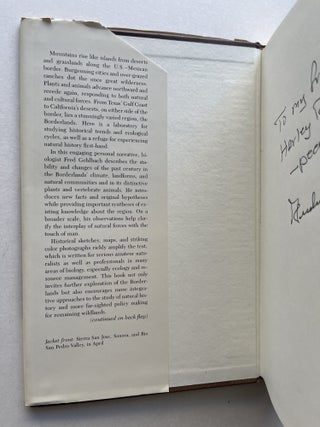 Mountains rise like islands from deserts
and grasslands along the U.S.–Mexican
border. Burgeoning cities and over-grazed
ranches dot the once great wilderness.
Plants and animals advance northward and
recede again, responding both to natural
and cultural forces. From Texas' Gulf Coast
to California's deserts, on either side of the
border, lies a stunningly varied region, the
Borderlands. Here is a laboratory for
studying historical trends and ecological
cycles, as well as a refuge for experiencing
natural history first-hand.
In this engaging personal narrative, bi-
ologist Fred Gehlbach describes the sta-
bility and changes of the past century in
the Borderlands' climate, landforms, and
natural communities and in its distinctive
plants and vertebrate animals. He intro-
duces new facts and original hypotheses
while providing important syntheses of ex-
isting knowledge about the region. On a
broader scale, his observations help clarify
the interplay of natural forces with the
touch of man.
Historical sketches, maps, and striking
color photographs richly amplify the text,
which is written for serious amateur natu-
ralists as well as professionals in many
areas of biology, especially ecology and re-
source management. This book not only
invites further exploration of the Border-
lands but also encourages more integra-
tive approaches to the study of natural his-
tory and more far-sighted policy making
for remaining wildlands.
(continued on back flap)
Jacket front: Sierra San Jose, Sonora, and Rio
San Pedro Valley, in April
To my
Harley